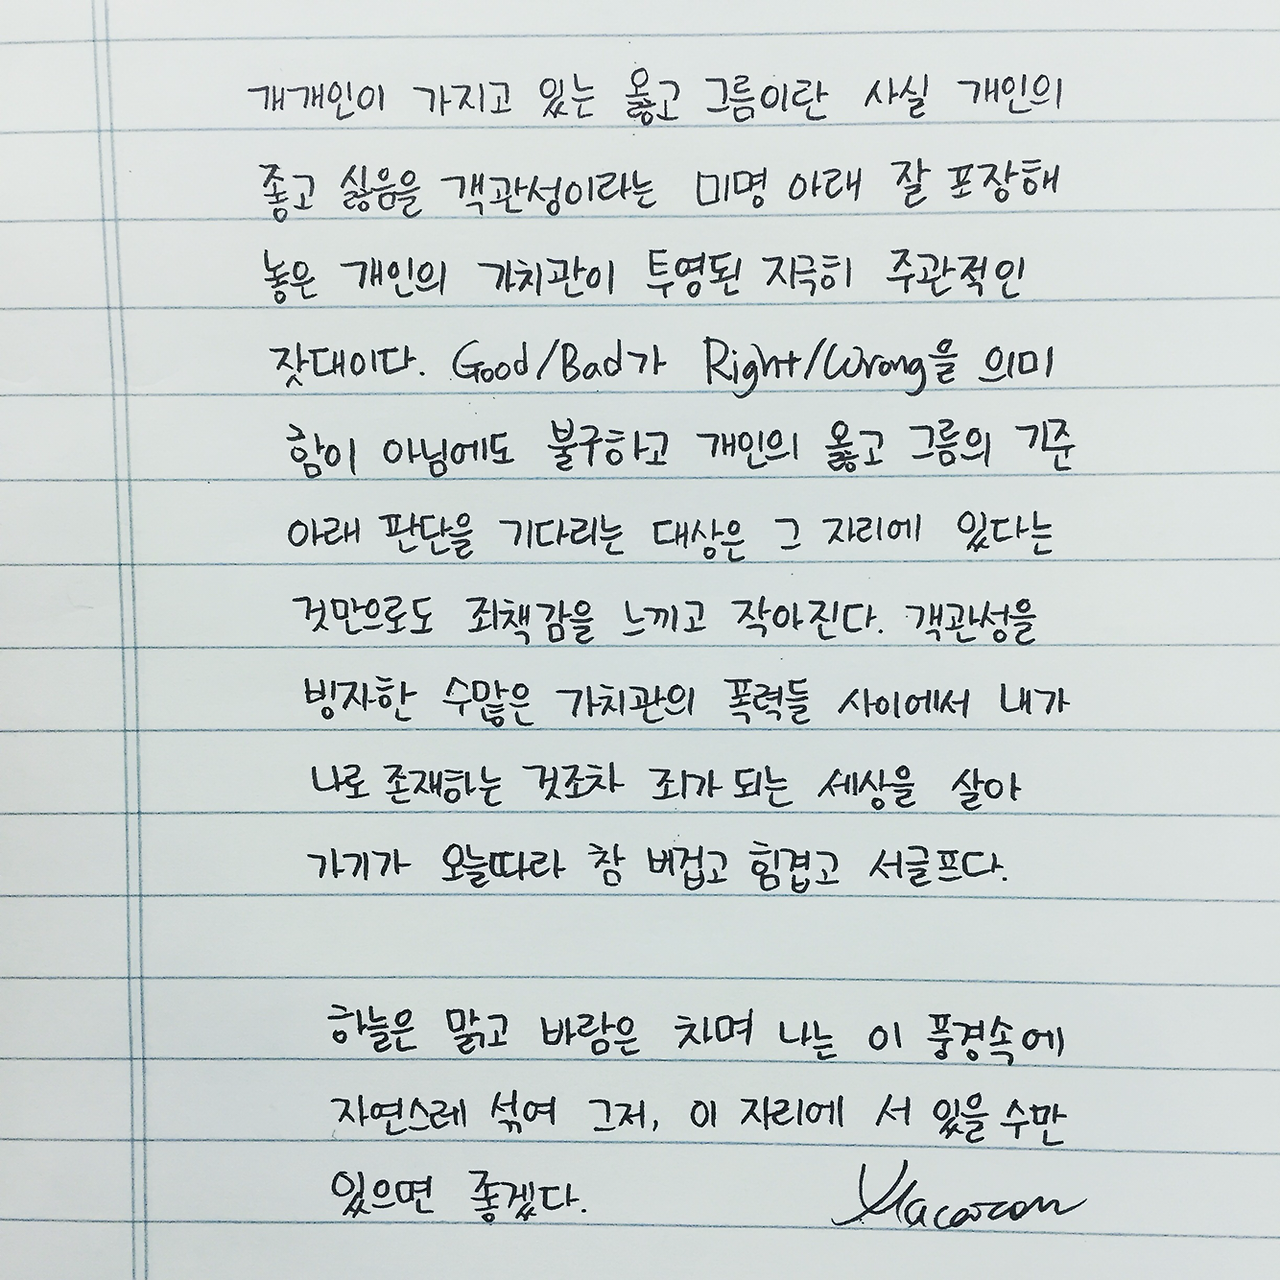 개개인이 가지고 있는 옳고 그름이란 사실 개인의
좋고 싫음을 객관성이라는 미명 아래 잘 포장해
놓은 개인의 가치관이 투영된 지극히 주관적인
잣대이다. Good/Bad가 Right/Wrong을 의미
함이 아님에도 불구하고 개인의 옳고 그름의 기준
아래 판단을 기다리는 대상은 그 자리에 있다는
것만으로도 죄책감을 느끼고 작아진다. 객관성을
빙자한 수많은 가치관의 폭력들 사이에서 내가
나로 존재하는 것조차 죄가 되는 세상을 살아
가기가 오늘따라 참 버겁고 힘겹고 서글프다.
하늘은 맑고 바람은 치며 나는 이 풍경속에
자연스레 섞여 그저, 이 자리에 서 있을 수만
있으면 좋겠다. Macaron